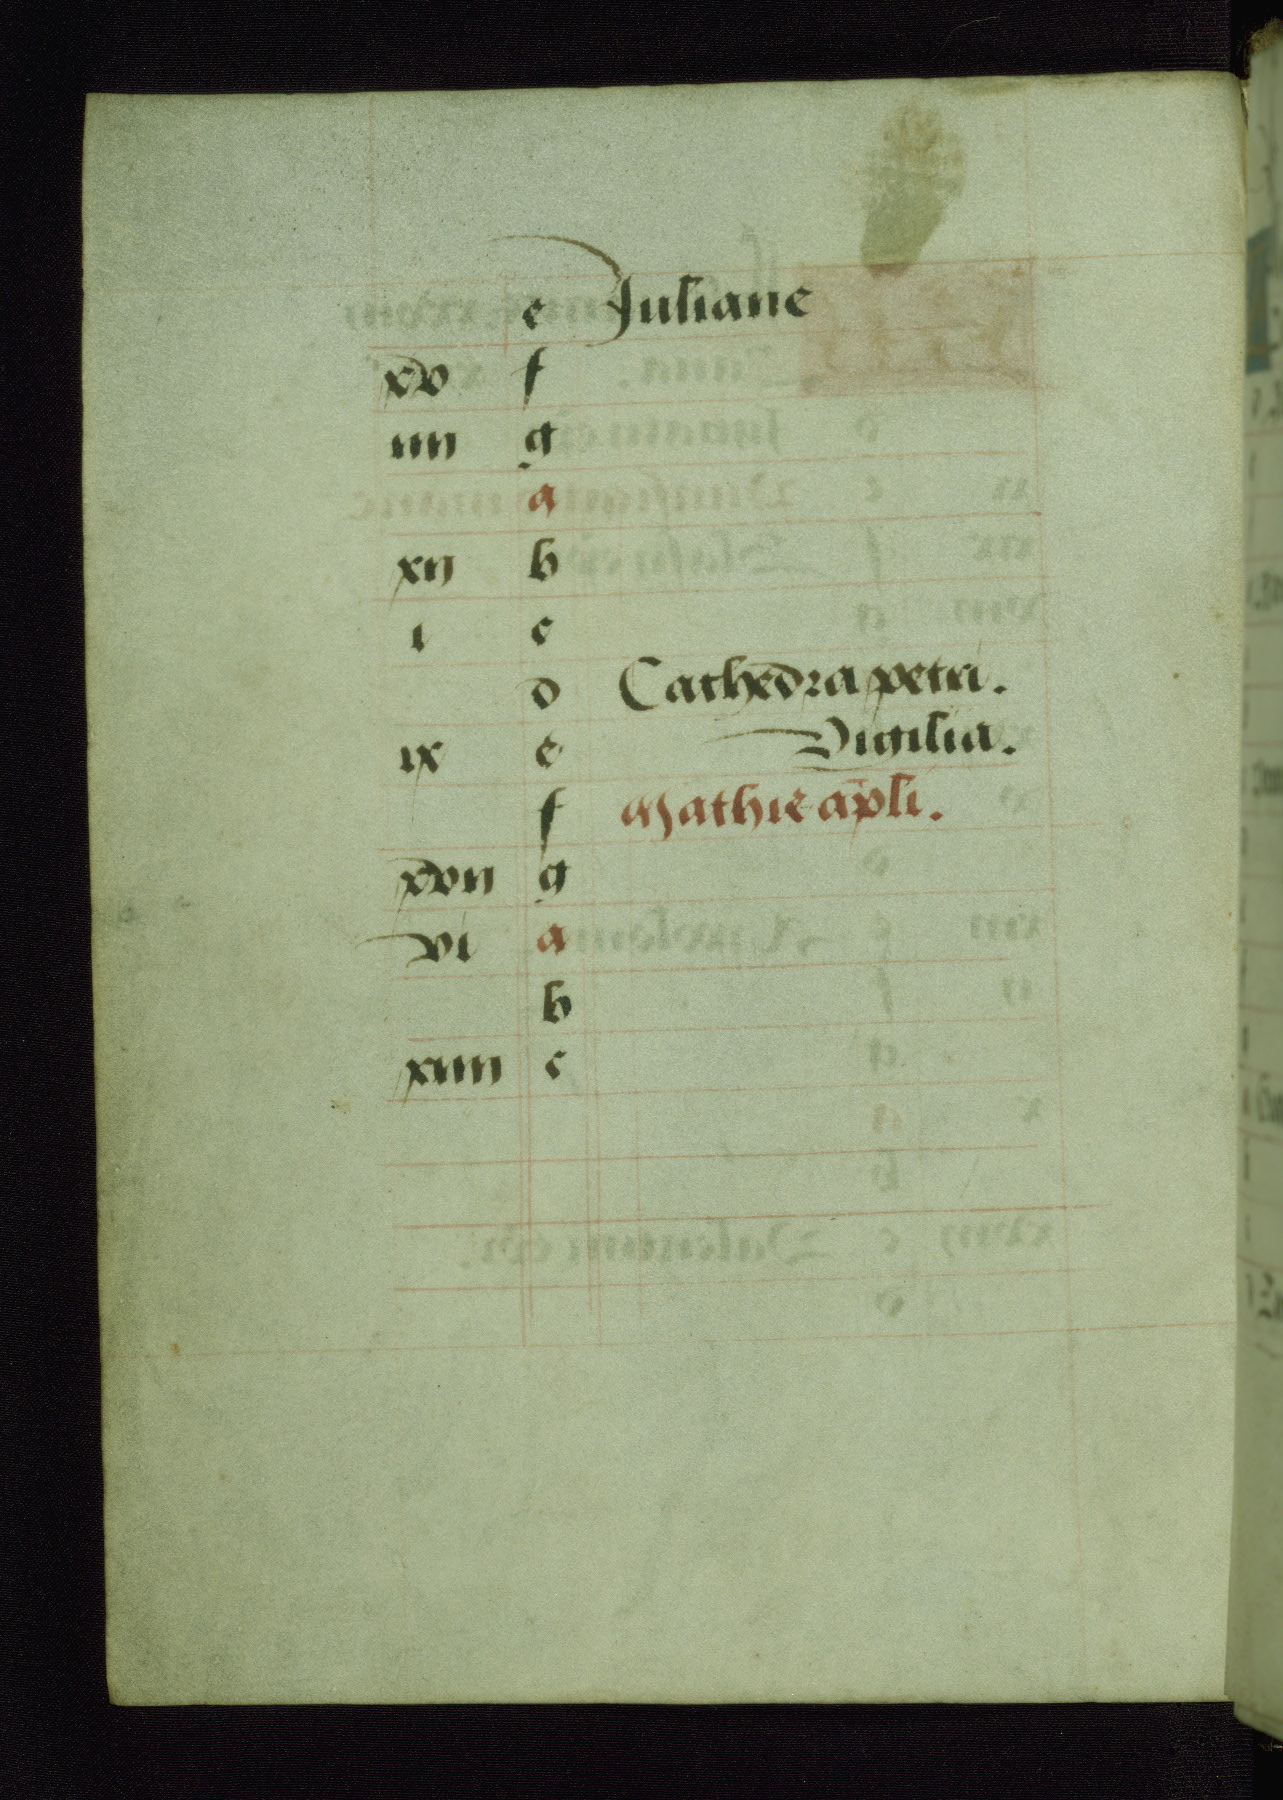 e Juliane
xv f
iiij g
a
xij b
i c
d Cathedra petri.
ix e Vigilia.
f Mathie apli.
xvij g
vi a
b
xiiij c